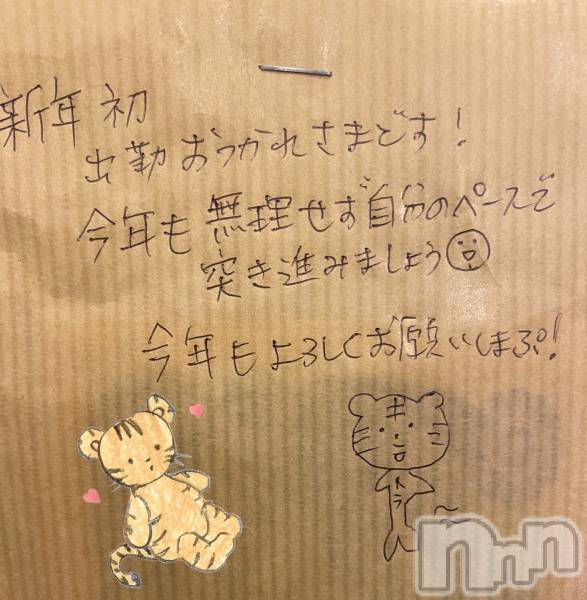 新年初
出勤おつかれさまです!
今年も無理せず自分のペースで
突き進みましょう
今年もよろしくお願いしまぷ!
トラ
nnn